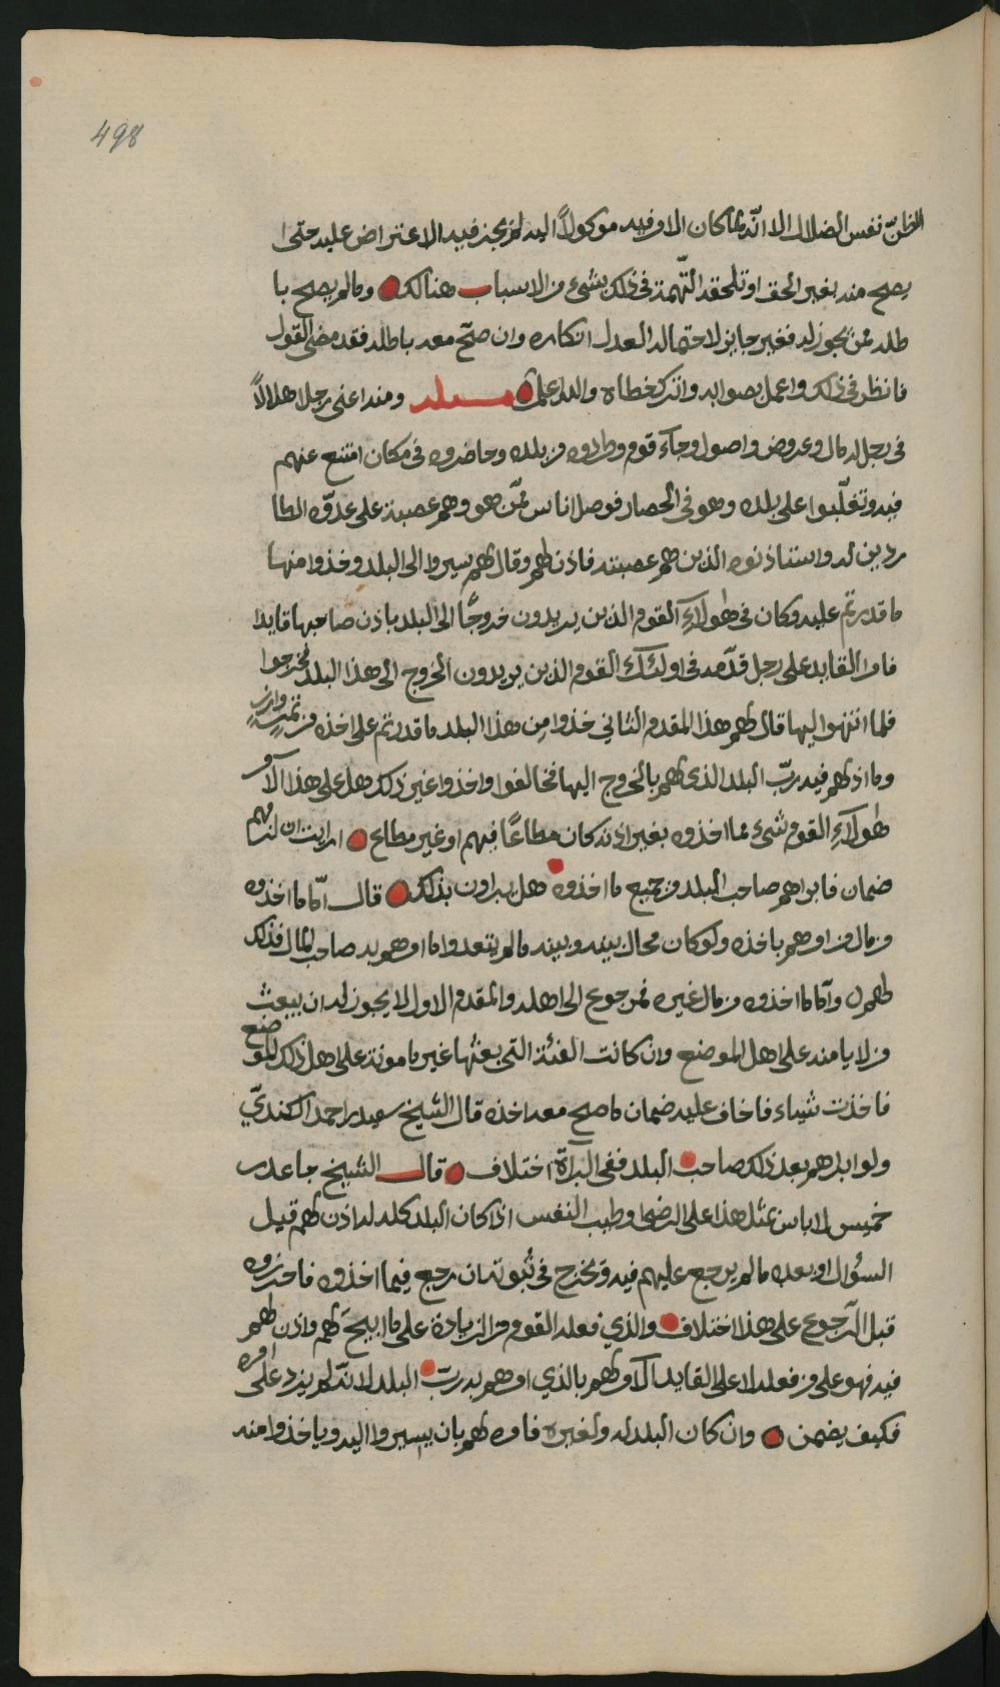 498
الظن نفس الضلال الا انه لما كان الامر فيه موكولاً اليه لم يجز فيه الاعتراض عليه حتى
يصح منه بغير الحق او تلحقه التّهمة فى ذلك بشئ من الاسباب هنالك وما لم يصح با
طله ممن يجوز له فغير جايز لاحتماله العدل انكاره وان صحّ معه باطله فقد مضى القول
فانظر فى ذلك واعمل بصوابه واترك خطاه والله اعلم مسئله ومنه اعنى رجلا اهلالاً
فى رجل له مال وعروض واصول وجآء قوم وطردوه من بلده وحاضروه فى مكان امتنع عنهم
فيه وتغلّبوا على بلده وهو فى الحصار فوصل اناس ممّن هو وهم عصبة على عدوّه الطا
ردين له واستاذنوه الذين هم عصبته فاذن لهم وقال لهم سيروا الى البلد وخذوا منها
ما قدرتم عليه وكان فى هولآءِ القوم الذين يريدون خروجًا الى البلد باذن صاحبها قايد
فامر القايد على رجل قدّمه فى اولئك القوم الذين يريدون الخروج الى هذا البلد فخرجوا
فلما انتهوا اليها قال لهم هذا المقدم الثاني خذوا مِن هذا البلد ما قدرتم على اخذه من تمرٍ وارزٍ
وما اذ لهم فيه ربّ البلد الذى لهم بالخروج اليها فخالفوا واخذوا غير ذلك هل على هذا الآمر
هولآءِ القوم شئ مما اخذوه بغير اذنه كان مطاعًا فيهم او غير مطاع ارايت ان لزمهم
ضمان فابراهم صاحب البلد من جميع ما اخذوه هل يبراون بذلك قال امّا ما اخذوه
من مال من امرهم باخذه ولو كان محال بينه وبينه ما لم يتعدوا ما امرهم به صاحب المال فذلك
لهم وآما ما اخذوه من مال غيره فمرجوع الى اهله والمقدم الاول لا يجوز له ان يبعث
من لا يامنه على اهل الموضع وان كانت الفئة التى بعثها غير مامونة على اهل ذلك الموضع
فاخذت شياء فاخاف عليه ضمان ما صح معه اخذه قال الشيخ سعيد بن احمد الكنديّ
ولو ابراهم بعد ذلك صاحب البلد ففى البرآة اختلاف قال الشيخ جاعد بن
خميس لا باس بمثل هذا على الرضى وطيب النفس اذا كان البلد كله له اذن لهم قبل
السؤال او بعده ما لم يرجع عليهم فيه ويخرج فى ثبوته ان رجع فيما اخذوه فاحرزوه
قبل الرّجوع على هذا اختلاف والذي فعله القوم من الزيادة على ما ابيحَ لهم واذن لهم
فيه فهو على من فعله لا على القايد الآمر لهم بالذي امرهم به ربّ البلد لانّه لم يزد على امره
فكيف يضمن وان كان البلد له ولغيره فامره لهم بان يسيروا اليه وياخذوا منه